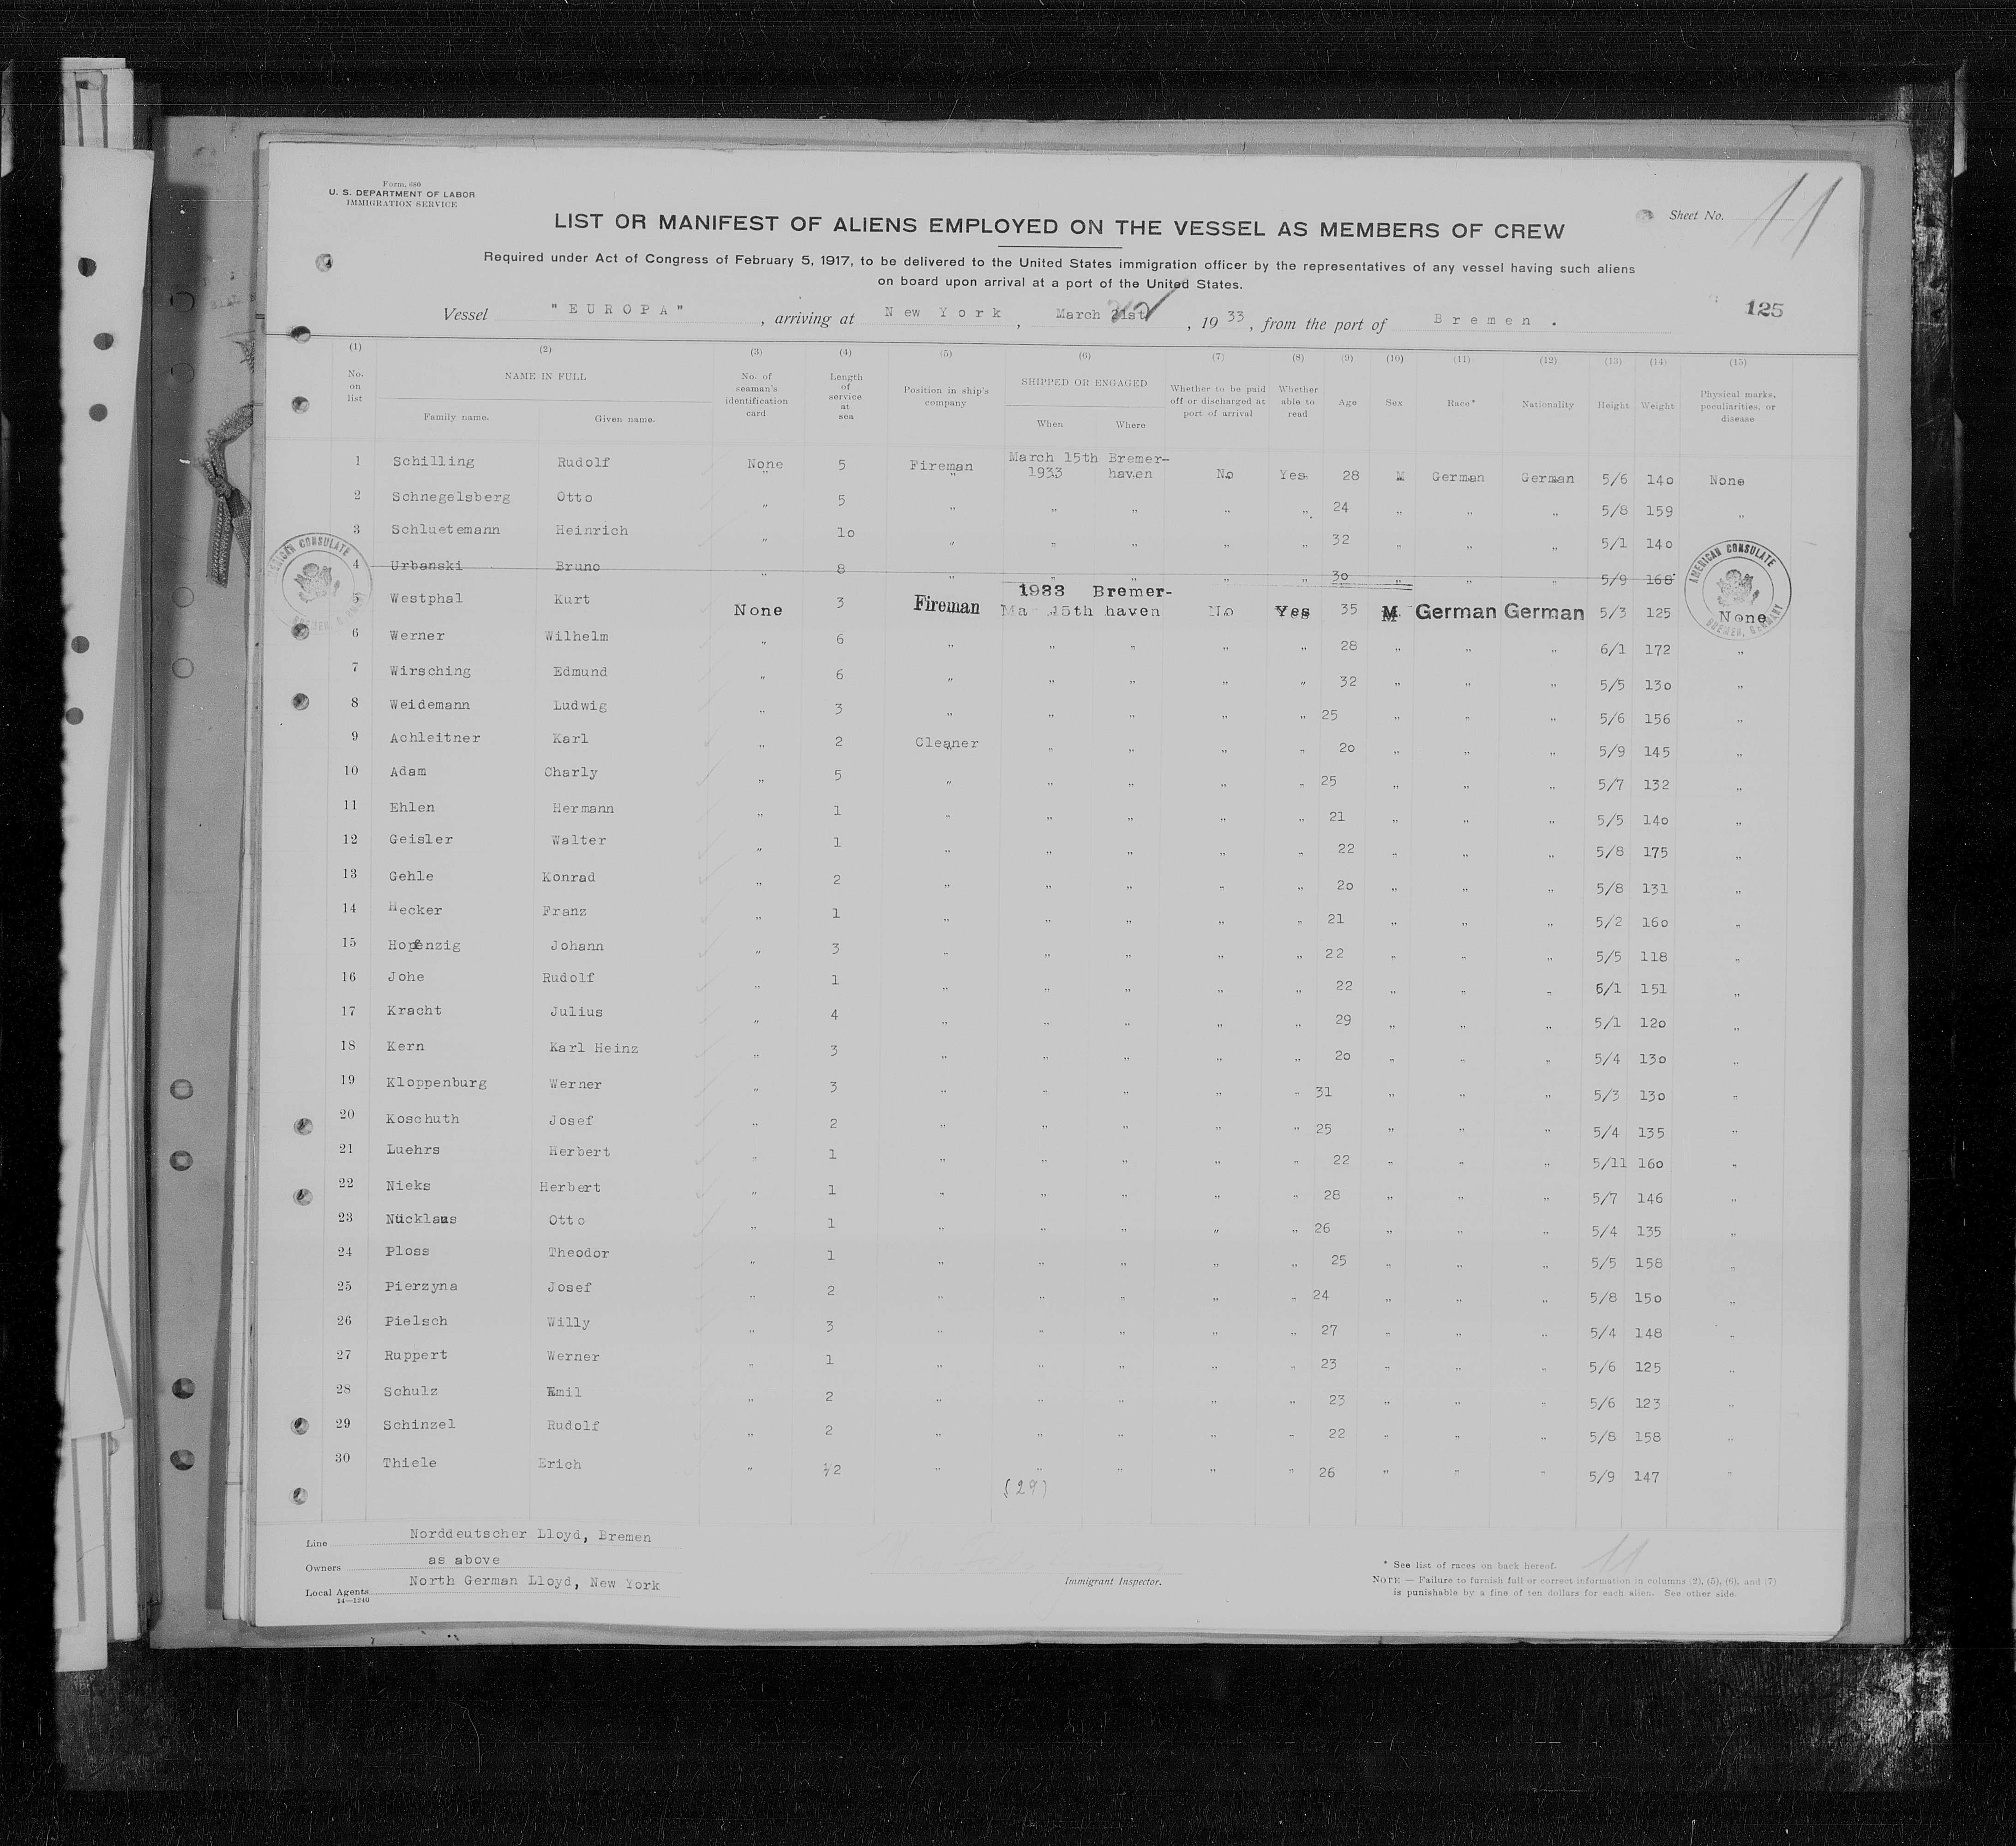 Form. 680
U. S. DEPARTMENT OF LABOR
IMMIGRATION SERVICE
Sheet No. 11
LIST OR MANIFEST OF ALIENS EMPLOYED ON THE VESSEL AS MEMBERS OF CREW
Required under Act of Congress of February 5, 1917, to be delivered to the United States immigration officer by the representatives of any vessel having such aliens
on board upon arrival at a port of the United States.
125
Vessel "EUROPA", arriving at New York, March 21st, 1933, from the port of Bremen.
(1) (2) (3) (4) (5) (6) (7) (8) (9) (10) (11) (12) (13) (14) (15)
No. on list NAME IN FULL Family name. Given name. No. of seaman's identification card Length of service at sea Position in ship's company SHIPPED OR ENGAGED When Where Whether to be paid off or discharged at port of arrival Whether able to read Age Sex Race* Nationality Height Weight Physical marks, peculiarities, or disease
1 Schilling Rudolf None 5 Fireman March 15th 1933 Bremer-haven No Yes 28 M German German 5/6 140 None
2 Schnegelsberg Otto " 5 " " " " " 24 " " " 5/8 159 "
3 Schluetemann Heinrich " 10 " " " " " 32 " " " 5/1 140
4 Urbanski Bruno " 8 " " " " " 30 " 5/9 168
5 Westphal Kurt None 3 Fireman 1933 Mar 15th Bremer-haven No Yes 35 M German German 5/3 125 None
6 Werner Wilhelm " 6 " " " " " 28 " " " 6/1 172 "
7 Wirsching Edmund " 6 " " " " " 32 " " " 5/5 130 "
8 Weidemann Ludwig " 3 " " " " " 25 " " " 5/6 156 "
9 Achleitner Karl " 2 Cleaner " " " " 20 " " " 5/9 145 "
10 Adam Charly " 5 " " " " " 25 " " " 5/7 132 "
11 Ehlen Hermann " 1 " " " " " 21 " " " 5/5 140 "
12 Geisler Walter " 1 " " " " " 22 " " " 5/8 175 "
13 Gehle Konrad " 2 " " " " " 20 " " " 5/8 131 "
14 Hecker Franz " 1 " " " " " 21 " " " 5/2 160 "
15 Hopfenzig Johann " 3 " " " " " 22 " " " 5/5 118 "
16 Johe Rudolf " 1 " " " " " 22 " " " 6/1 151 "
17 Kracht Julius " 4 " " " " " 29 " " " 5/1 120 "
18 Kern Karl Heinz " 3 " " " " " 20 " " " 5/4 130 "
19 Kloppenburg Werner " 3 " " " " " 31 " " " 5/3 130 "
20 Koschuth Josef " 2 " " " " " 25 " " " 5/4 135 "
21 Luehrs Herbert " 1 " " " " " 22 " " " 5/11 160 "
22 Nieks Herbert " 1 " " " " " 28 " " " 5/7 146 "
23 Nücklaus Otto " 1 " " " " " 26 " " " 5/4 135 "
24 Ploss Theodor " 1 " " " " " 25 " " " 5/5 158 "
25 Pierzyna Josef " 2 " " " " " 24 " " " 5/8 150 "
26 Pielsch Willy " 3 " " " " " 27 " " " 5/4 148 "
27 Ruppert Werner " 1 " " " " " 23 " " " 5/6 125 "
28 Schulz Emil " 2 " " " " " 23 " " " 5/6 123 "
29 Schinzel Rudolf " 2 " " " " " 22 " " " 5/8 158 "
30 Thiele Erich " 1/2 " " " " " 26 " " " 5/9 147 "
(29)
AMERICAN CONSULATE
BREMEN, GERMANY
AMERICAN CONSULATE
BREMEN, GERMANY
Line Norddeutscher Lloyd, Bremen
Owners as above
Local Agents North German Lloyd, New York
14—1240
Immigrant Inspector.
11
* See list of races on back hereof.
NOTE — Failure to furnish full or correct information in columns (2), (5), (6), and (7)
is punishable by a fine of ten dollars for each alien. See other side.